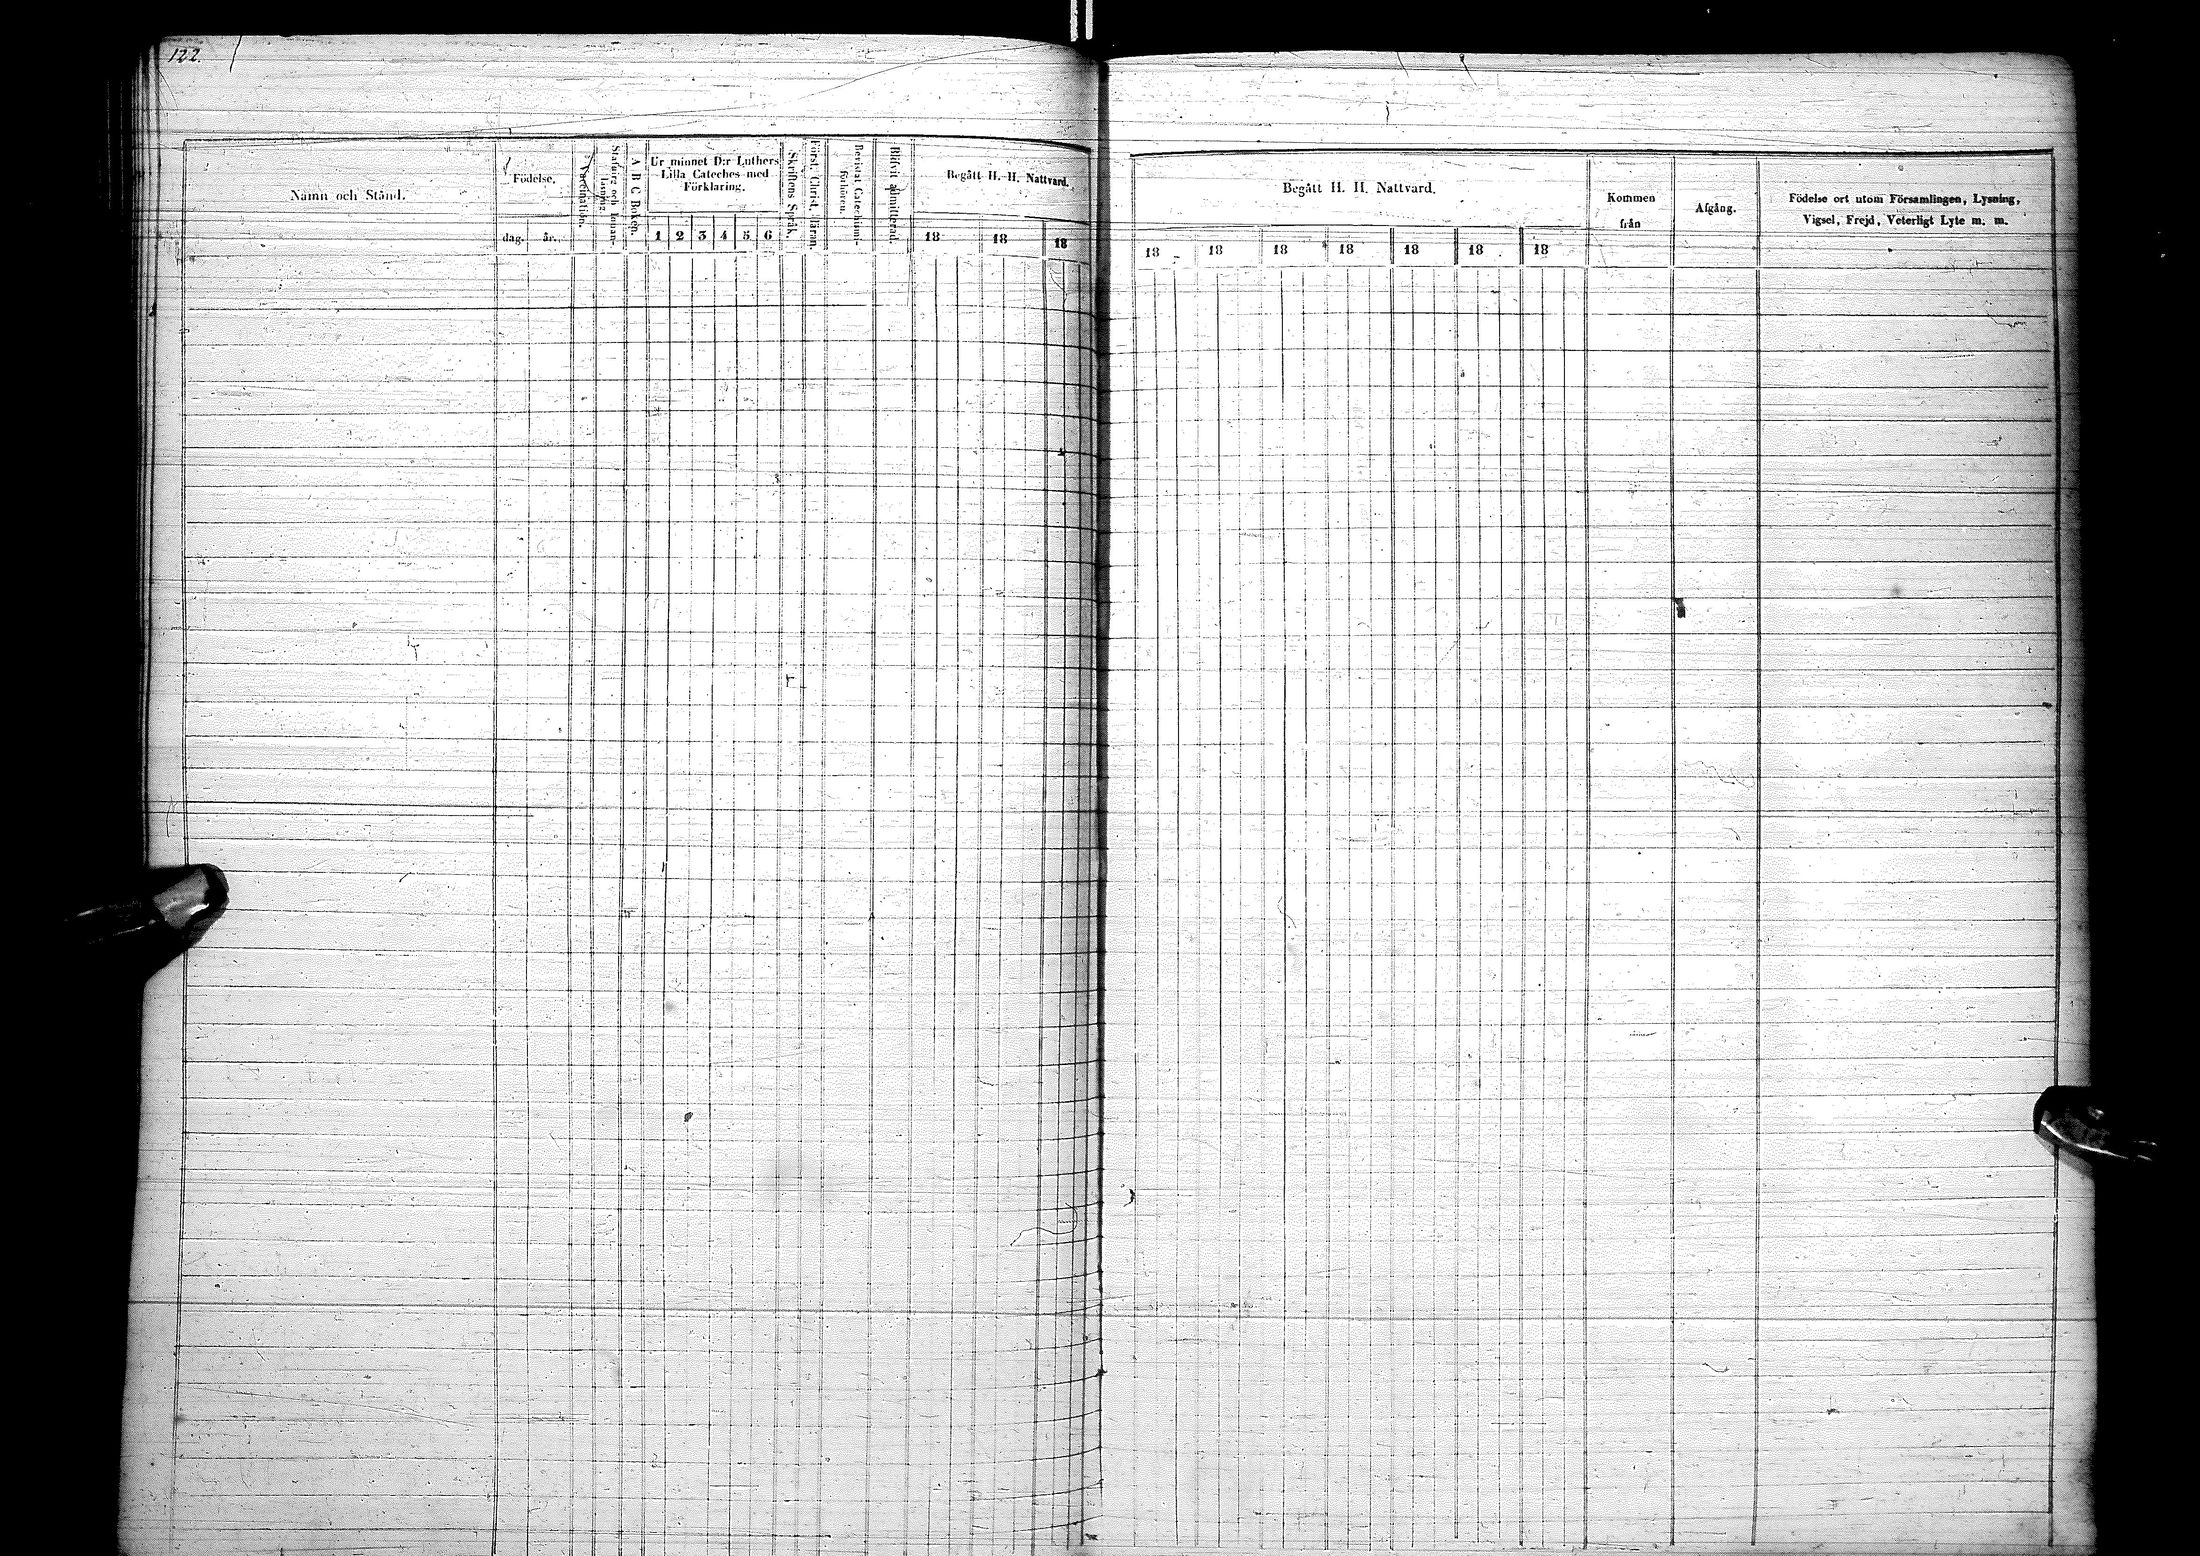 122.
Namn och Stånd.
Födelse.
dag. år.
Vaccination.
Stafning och Innan-
läsning.
A B C Boken.
Ur minnet D:r Luthers
Lilla Cateches med
Förklaring.
1 2 3 4 5 6
Skriftens Språk.
Först. Christ. läran.
Bevistat Catechismi-
förhören.
Blifvit admitterad.
Begått H. H. Nattvard.
18 18 18
Begått H. H. Nattvard.
18 18 18 18 18 18 18
Kommen
från
Afgång.
Födelse ort utom Församlingen, Lysning,
Vigsel, Frejd, Veterligt Lyte m. m.